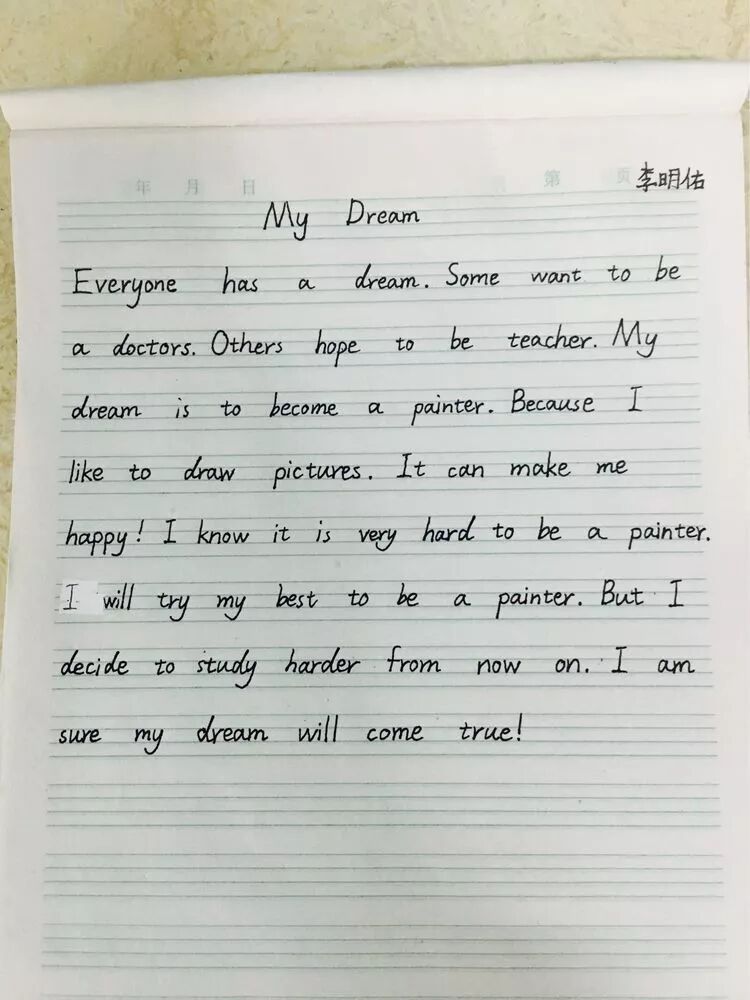 年 月 日 第 页
李明佑
My Dream
Everyone has a dream. Some want to be
a doctors. Others hope to be teacher. My
dream is to become a painter. Because I
like to draw pictures. It can make me
happy! I know it is very hard to be a painter.
I will try my best to be a painter. But I
decide to study harder from now on. I am
sure my dream will come true!